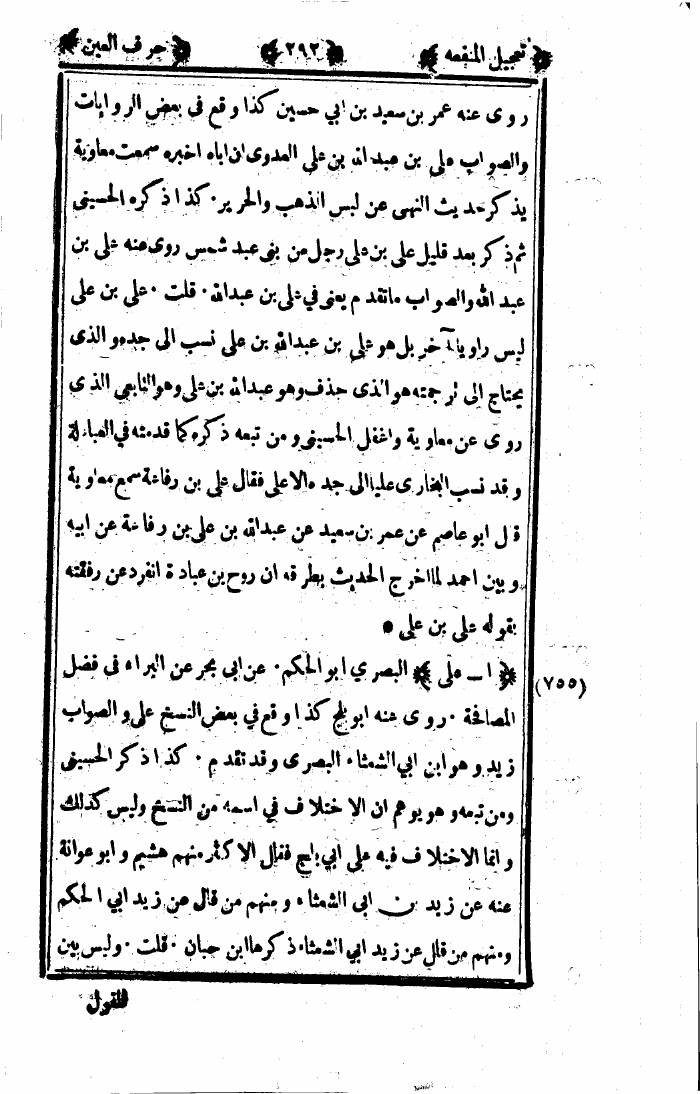 تعجيل المنفعه ﴿٢٩٢﴾ حرف العين
روى عنه عمر بن سعيد بن ابي حسين كذا وقع في بعض الروايات
والصواب علي بن عبدالله بن علي العدوى ان اباه اخبره سمعت معاوية
يذكر حديث النهى عن لبس الذهب والحرير٠ كذا ذكره الحسيني
ثم ذكر بعد قليل علي بن علي رجل من بنى عبد شمس روى عنه علي بن
عبد الله والصواب ماتقدم يعنى في علي بن عبدالله٠ قلت ٠ علي بن علي
ليس راويا آخر بل هو علي بن عبدالله بن علي نسب الى جده والذى
يحتاج الى ترجمته هو الذى حذف وهو عبدالله بن علي وهو التابعي الذي
روى عن معاوية واغفل الحسيني ومن تبعه ذكره كما قدمته في العبادلة
وقد نسب البخارى عليا الى جده الاعلى فقال علي بن رفاعة سمع معاوية
قال ابو عاصم عن عمر بن سعيد عن عبدالله بن علي بن رفاعة عن ابيه
وبين احمد لما اخرج الحديث بطرقه ان روح بن عبادة انفرد عن رفقته
بقوله علي بن علي ●
﴿ ا ـ علي ﴾ البصري ابو الحكم٠ عن ابي بحر عن البراء في فضل (٧٥٥)
المصافحة ٠ روى عنه ابو بلج كذا وقع في بعض النسخ علي والصواب
زيد وهو ابن ابي الشعثاء البصرى وقد تقدم ٠ كذا ذكر الحسيني
ومن تبعه وهو يوهم ان الاختلاف في اسمه من النسخ وليس كذلك
وانما الاختلاف فيه على ابي بلج فقال الاكثر منهم هشيم وابو عوانة
عنه عن زيد بن ابى الشعثاء ومنهم من قال عن زيد ابي الحكم
ومنهم من قال عن زيد ابي الشعثاء ذكرها ابن حبان ٠ قلت ٠ وليس بين
المقول